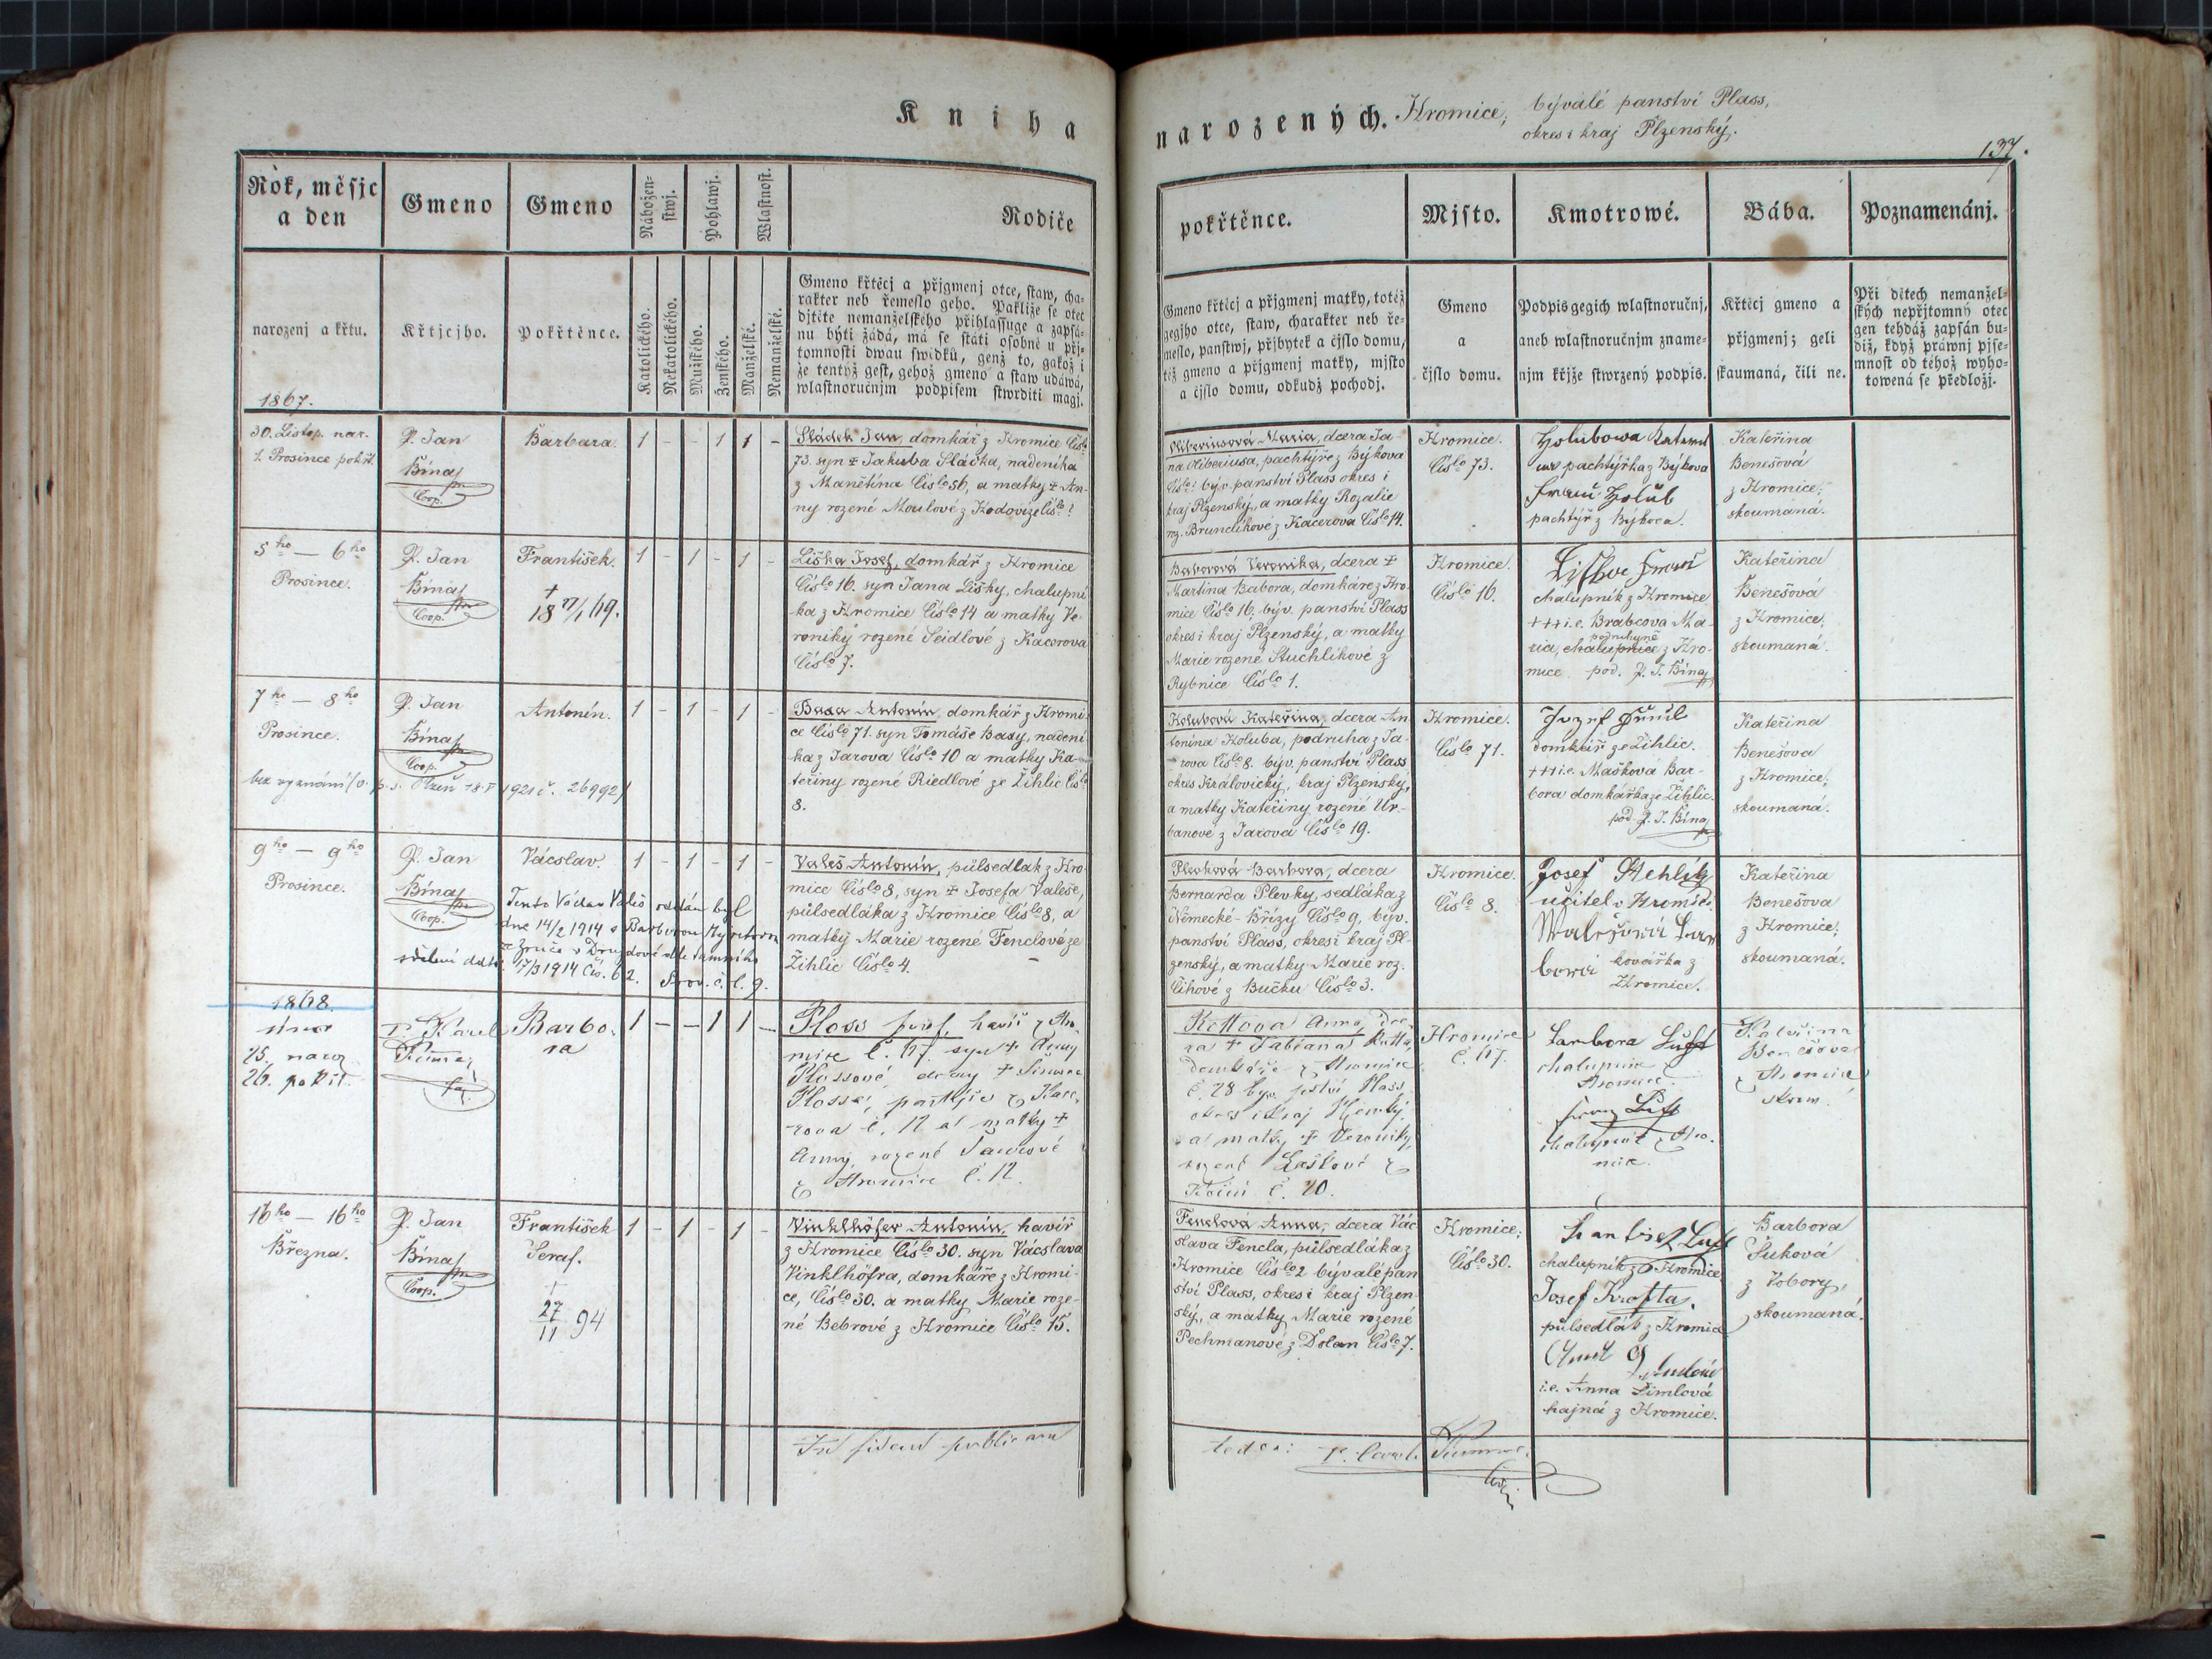 Kniha
narozených.
Hromice, bývalé panství Plass,
okres i kraj Plzenský.
137.
Rok, měsjc
a den
narozenj a křtu.
1867.
Gmeno
Křtjcjho.
Gmeno
Pokřtěnce.
Nábožen-
stwj.
Katolického.
Nekatolického.
Pohlawj.
Mužského.
Ženského.
Wlastnost.
Manželské.
Nemanželské.
Rodiče
Gmeno křtěcj a přjgmenj otce, staw, cha-
rakter neb řemeslo geho. Pakliže se otec
djtěte nemanželského přihlassuge a zapsá-
nu býti žádá, má se státi osobně u přj-
tomnosti dwau swědků, genž to, gakož i
že tentýž gest, gehož gmeno a staw udáwá,
wlastnoručnjm podpisem stwrditi magj.
pokřtěnce.
Gmeno křtěcj a přjgmenj matky, totéž
gegjho otce, staw, charakter neb ře-
meslo, panstwj, přjbytek a čjslo domu,
též gmeno a přjgmenj matky, mjsto
a čjslo domu, odkudž pochodj.
Mjsto.
Gmeno
a
čjslo domu.
Kmotrowé.
Podpis gegich wlastnoručnj,
aneb wlastnoručnjm zname-
njm křjže stwrzený podpis.
Bába.
Křtěcj gmeno a
přjgmenj; geli
skaumaná, čili ne.
Poznamenánj.
Při dětech nemanžel-
ských nepřjtomný otec
gen tehdáž zapsán bu-
diž, když práwnj pjse-
mnost od téhož wyho-
towená se předložj.
30. Listop. nar.
1. Prosince pokřt.
P. Jan
Bína
Coop.
Barbara.
1 - - 1 1 -
Sládek Jan, domkář z Hromice Číslo
73. syn + Jakuba Sládka, nádeníka
z Manětína Číslo 56, a matky + An-
ny rozené Moulové z Hodovíze Číslo ?
Maria, dcera Ja-
na, pachtýře z Býkova
Číslo 1 býv. panství Plass okres i
kraj Plzenský, a matky Rozalie
roz. Brunclíkové z Kacerova Číslo 14.
Hromice.
Číslo 73.
Holubowa
pachtýřka z Býkova
Holub
pachtýř z Býkova.
Kateřina
Benešová
z Hromice;
skoumaná.
5ho — 6ho
Prosince.
P. Jan
Bína
Coop.
František.
+
18 17/1 69.
1 - 1 - 1 -
Liška Josef, domkář z Hromice
Číslo 16. syn Jana Lišky, chalupní-
ka z Hromice Číslo 14 a matky Ve-
roniky rozené Seidlové z Kacerova
Číslo 7.
Baborová Veronika, dcera +
Martina Babora, domkáře z Hro-
mice Číslo 16, býv. panství Plass
okres i kraj Plzenský, a matky
Marie rozené Stuchlíkové z
Rybnice Číslo 1.
Hromice.
Číslo 16.
chalupník z Hromice
+++ i.e. Brabcova Ma-
podruhyně
ria, chalupnice z Hro-
mice pod. P. J. Bína
Kateřina
Benešová
z Hromice;
skoumaná.
7ho — 8ho
Prosince.
P. Jan
Bína
Coop.
Antonín.
1 - 1 - 1 -
bez vyznání (o. p. s. Plzeň 18.I 1921 č. 26992)
Basa Antonín, domkář z Hromi-
ce Číslo 71. syn Tomáše Basy, nádení-
ka z Jarova Číslo 10 a matky Ka-
teřiny rozené Riedlové ze Žihlic Číslo
8.
Holubová Kateřina, dcera An-
tonína Holuba, podruha z Ja-
rova Číslo 8. býv. panství Plass
okres Královický, kraj Plzenský,
a matky Kateřiny rozené Ur-
banové z Jarova Číslo 19.
Hromice.
Číslo 71.
Jozef
domkář ze Žihlic.
+++ i.e. Mašková Bar-
bora domkářka ze Žihlic.
pod. P. J. Bína
Kateřina
Benešova
z Hromice;
skoumaná.
9ho — 9ho
Prosince.
P. Jan
Bína
Coop.
Vácslav.
1 - 1 - 1 -
Tento Václav Valeš oddán byl
dne 14/2 1914 s Barborou
ze Zruče v Druzdové dle tamního
sdělení ddto. 17/3 1914 čís. 62. Prov. č. l. 9.
Valeš Antonín, půlsedlák z Hro-
mice Číslo 8, syn + Josefa Valeše,
půlsedláka z Hromice Číslo 8, a
matky Marie rozené Fenclové ze
Žihlic Číslo 4.
Plevková Barbora, dcera
Bernarda Plevky, sedláka z
Německé-Břízy Číslo 9, býv.
panství Plass, okres i kraj Pl-
zenský, a matky Marie roz.
Číhové z Bučku Číslo 3.
Hromice.
Číslo 8.
Josef Stehlík
učitel v Hromici.
Walešová Bar
borá kovářka z
Hromice.
Kateřina
Benešova
z Hromice;
skoumaná.
1868.
února
25. naroz.
26. pokřt.
P. Karel
far.
Barbo-
ra
1 - - 1 1 -
Ploss Josef, havíř z Hro-
mice č. 67. syn + Anny
Plossové, dcery + Šimona
Plossa, pastýře z Kace-
rova č. 12 a matky +
Anny, rozené
z Hromice č. 12.
Kottova Anna, dce-
ra + Fabiana Kotta,
domkáře z Hromice
č. 28 býv. pství Plass,
okres i kraj Plzenský,
a matky + Veroniky,
rozené Laštové z
č. 20.
Hromice
č. 67.
Barbora Lušt
chalupnice
Hromice.
chalupník z Hro-
mice.
Kateřina
Benešova
z Hromice
skoum.
16ho — 16ho
Března.
P. Jan
Bína
Coop.
František
Seraf.
+
27/11 94
1 - 1 - 1 -
Vinklhöfer Antonín, havíř
z Hromice Číslo 30. syn Vácslava
Vinklhöfra, domkáře z Hromi-
ce, Číslo 30. a matky Marie roze-
né Bebrové z Hromice Číslo 15.
Fenclová Anna, dcera Vác-
slava Fencla, půlsedláka z
Hromice Číslo 2 bývalé pan-
ství Plass, okres i kraj Plzen-
ský, a matky Marie rozené
Pechmanové z Dolan Číslo 7.
Hromice;
Číslo 30.
František Lušt
chalupník z Hromice
Josef Krofta.
půlsedlák z Hromice
i.e. Anna Šimlová
hajná z Hromice.
Barbora
Šuková
z Kobory,
skoumaná.
In fidem publicam